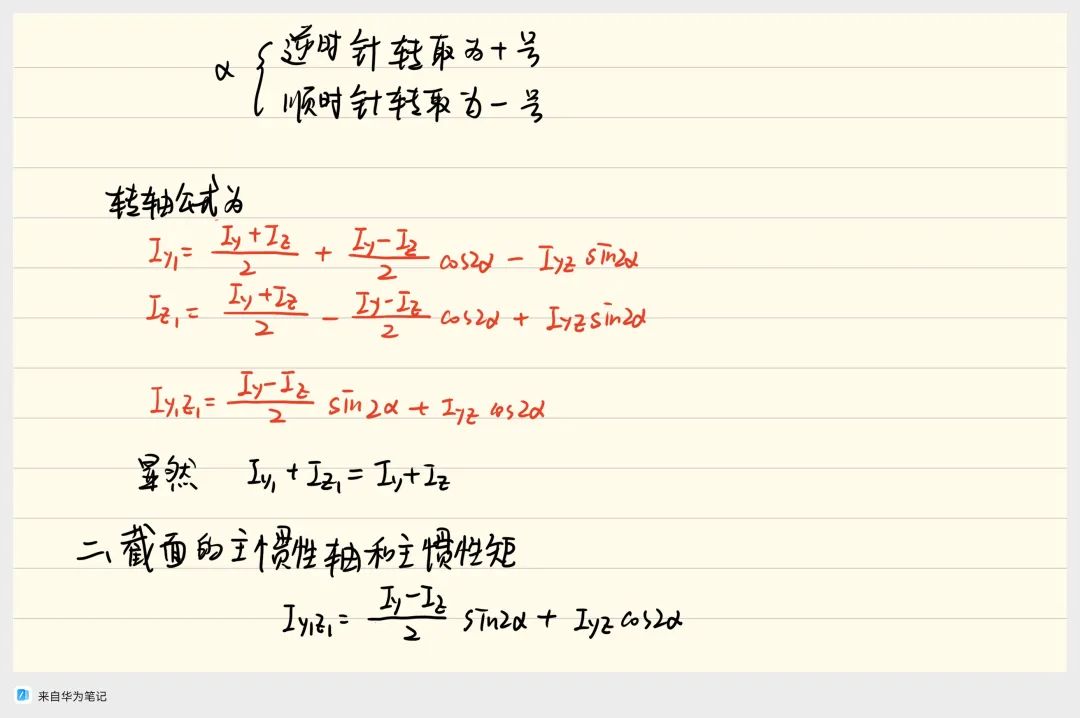 α { 逆时针转取为+号
顺时针转取为-号
转轴公式为
I_{y_1} = \frac{I_y+I_z}{2} + \frac{I_y-I_z}{2} cos2α - I_{yz} sin2α
I_{z_1} = \frac{I_y+I_z}{2} - \frac{I_y-I_z}{2} cos2α + I_{yz} sin2α
I_{y_1z_1} = \frac{I_y-I_z}{2} sin2α + I_{yz} cos2α
显然 I_{y_1} + I_{z_1} = I_y + I_z
二、截面的主惯性轴和主惯性矩
I_{y_1z_1} = \frac{I_y-I_z}{2} sin2α + I_{yz} cos2α
来自华为笔记